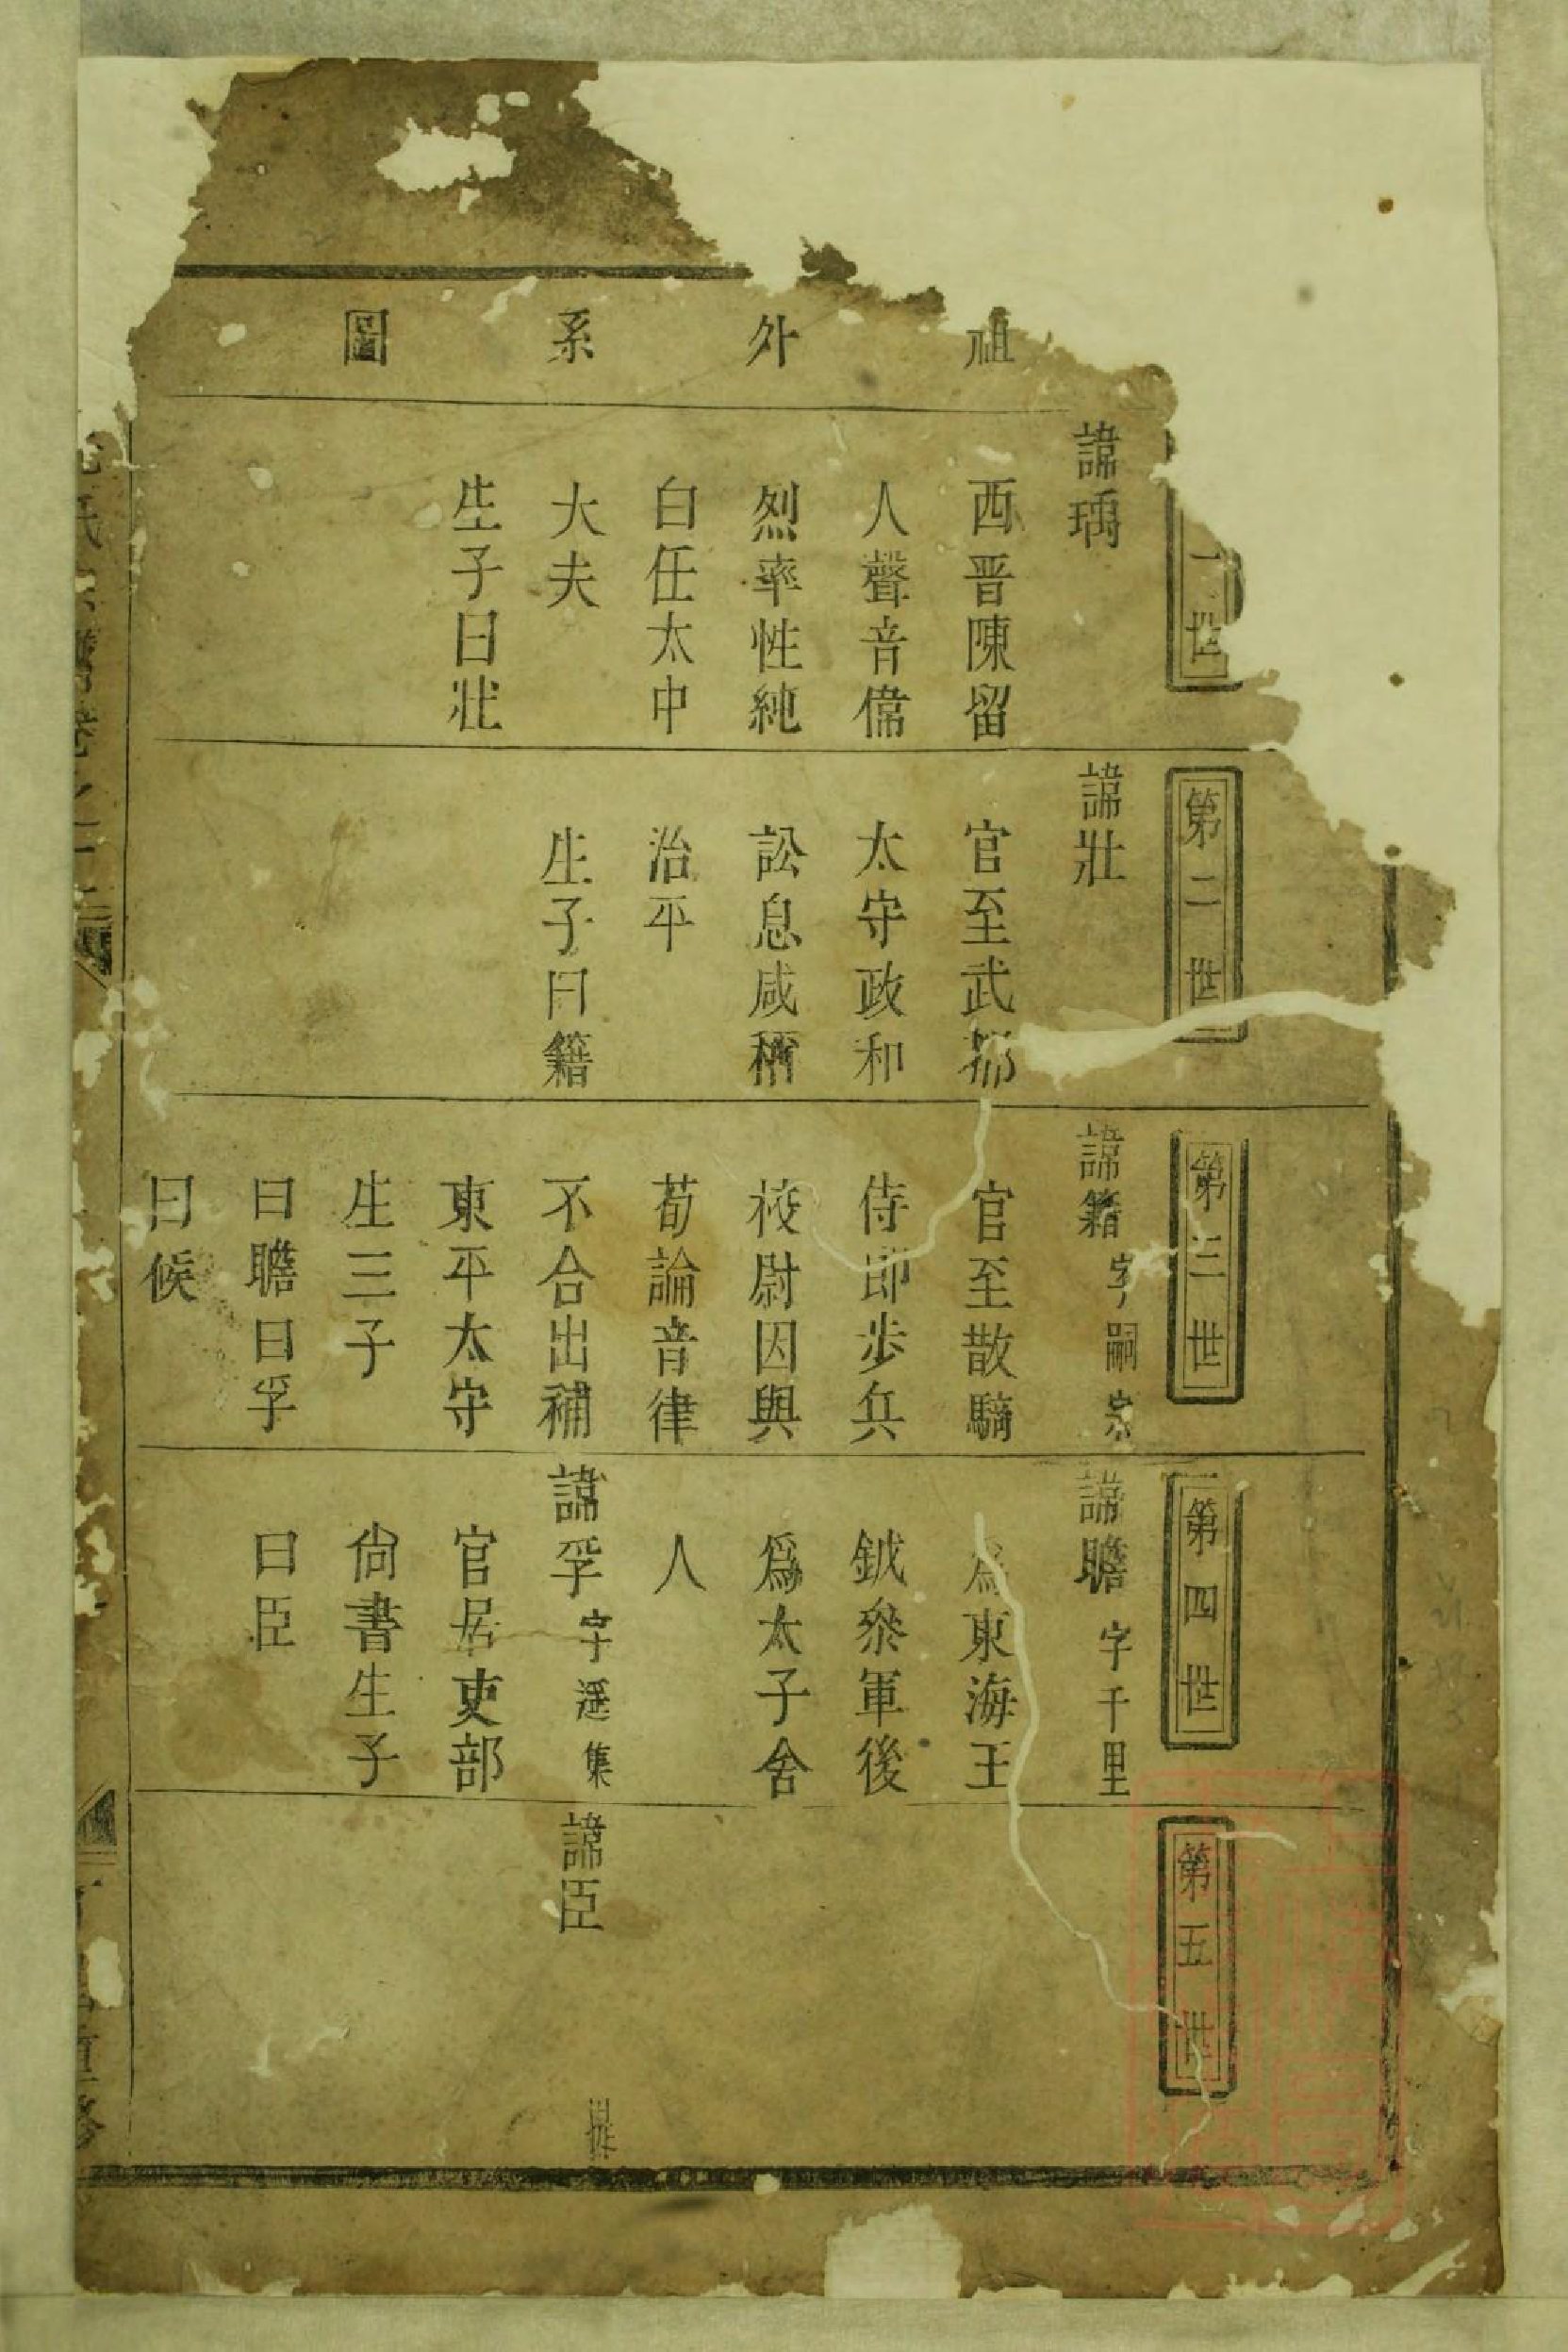 祖外系圖
一世
諱瑀
西晋陳留
人聲音偉
烈率性純
白任太中
大夫
生子曰壯
第二世
諱壯
官至武都
太守政和
訟息咸稱
治平
生子曰籍
第三世
諱籍 字嗣宗
官至散騎
侍郎步兵
校尉因與
荀論音律
不合出補
東平太守
生三子
曰瞻曰孚
曰候
第四世
諱瞻 字千里
為東海王
鉞叅軍後
爲太子舍
人
諱孚 字遥集
官居吏部
尙書生子
曰臣
第五世
諱臣